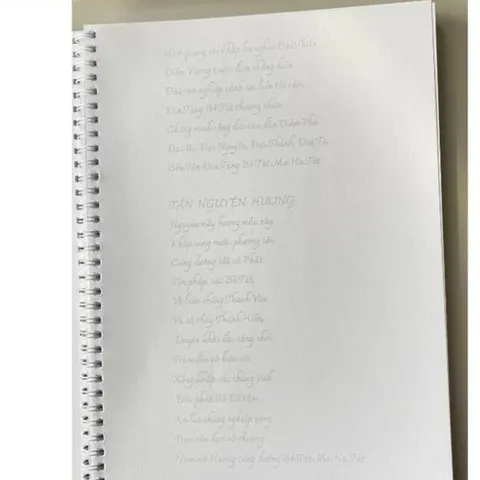 Hào quang soi khắp
Diêm Vương trước điện chẳng hiềm
Địa Tạng Bồ Tát thượng nhân
Chứng minh công đức của dân Diêm Phù
Đại Bi, Đại Nguyện, Đại Thánh, Đại Từ
Bổn Tôn Địa Tạng Bồ Tát Ma Ha Tát
TÁN NGUYỆN HƯƠNG
Nguyện mây hương mầu này
Khắp cùng mười phương cõi
Cúng dường tất cả Phật
Tôn pháp, các Bồ Tát,
Vô biên chúng Thanh Văn
Và cả thảy Thánh Hiền
Duyên khởi đài sáng chói
Trùm đến vô biên cõi,
Xông khắp các chúng sanh
Đều phát Bồ Đề tâm,
Xa lìa những nghiệp vọng
Trọn nên đạo vô thượng
Nam mô Hương cúng dường Bồ Tát Ma Ha Tát